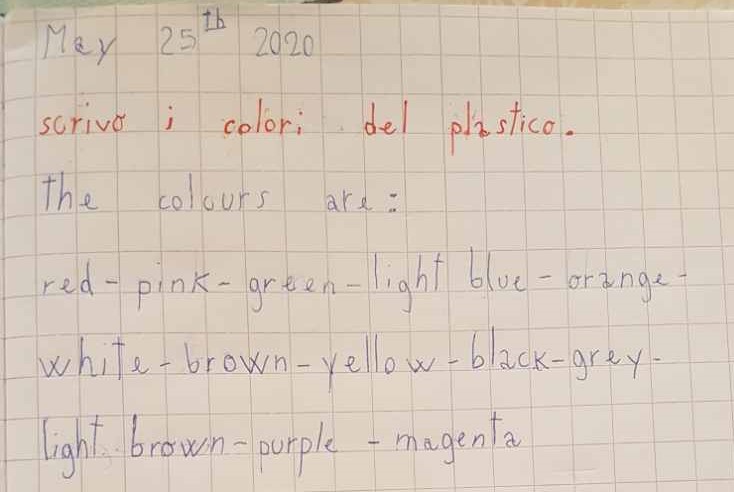 May 25th 2020
scrivo i colori del plastico.
the colours are:
red - pink - green - light blue - orange -
white - brown - yellow - black - grey -
light brown - purple - magenta